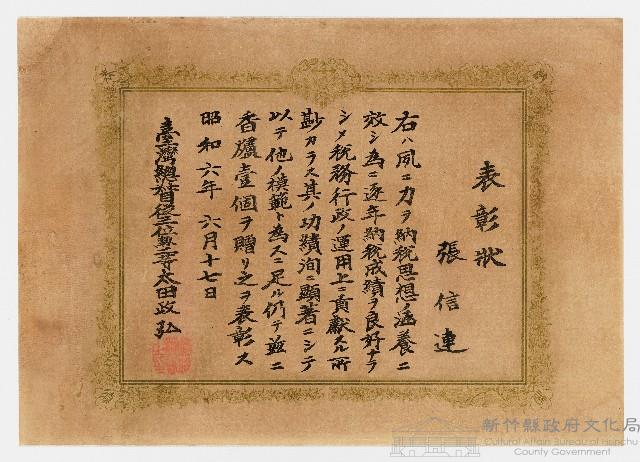 表彰狀
張信連
右ハ夙ニ力ヲ納稅思想ノ涵養ニ
效シ為ニ逐年納稅成績ヲ良好ナラ
シメ稅務行政ノ運用上ニ貢獻スル所
尠カラス其ノ功績洵ニ顯著ニシテ
以テ他ノ模範ト為スニ足ル仍テ茲ニ
香爐壹個ヲ贈リ之ヲ表彰ス
昭和六年六月十七日
臺灣總督從三位勲二等太田政弘
新竹縣政府文化局
Cultural Affair Bureau of Hsinchu
County Government